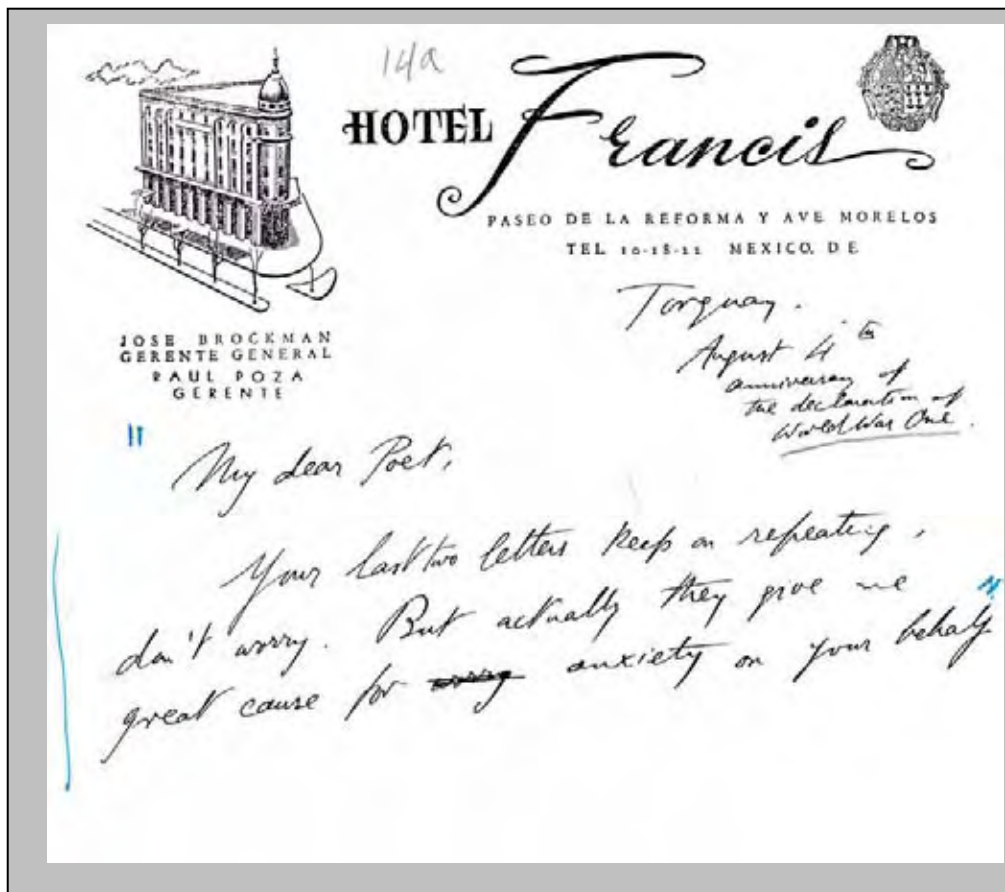 14a
HOTEL Francis
PASEO DE LA REFORMA Y AVE MORELOS
TEL 10-18-22 MEXICO, D E
JOSE BROCKMAN
GERENTE GENERAL
RAUL POZA
GERENTE
Torquay.
August 4th
anniversary of
the declaration of
World War One.
"
My dear Poet,
Your last two letters keep on repeating,
don't worry. But actually they give me
great cause for worry anxiety on your behalf"